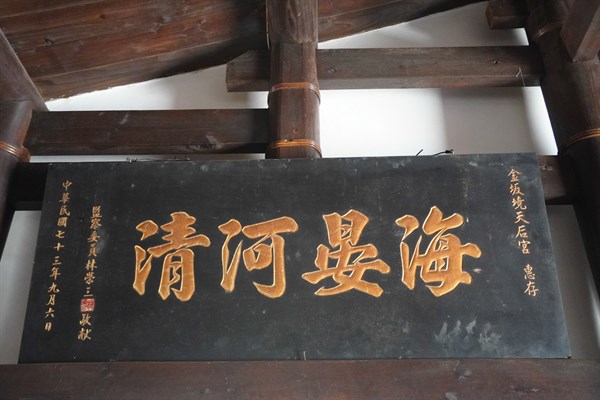 金坂境天后宮 惠存
海晏河清
監察委員林榮三 敬献
中華民國七十三年九月六日